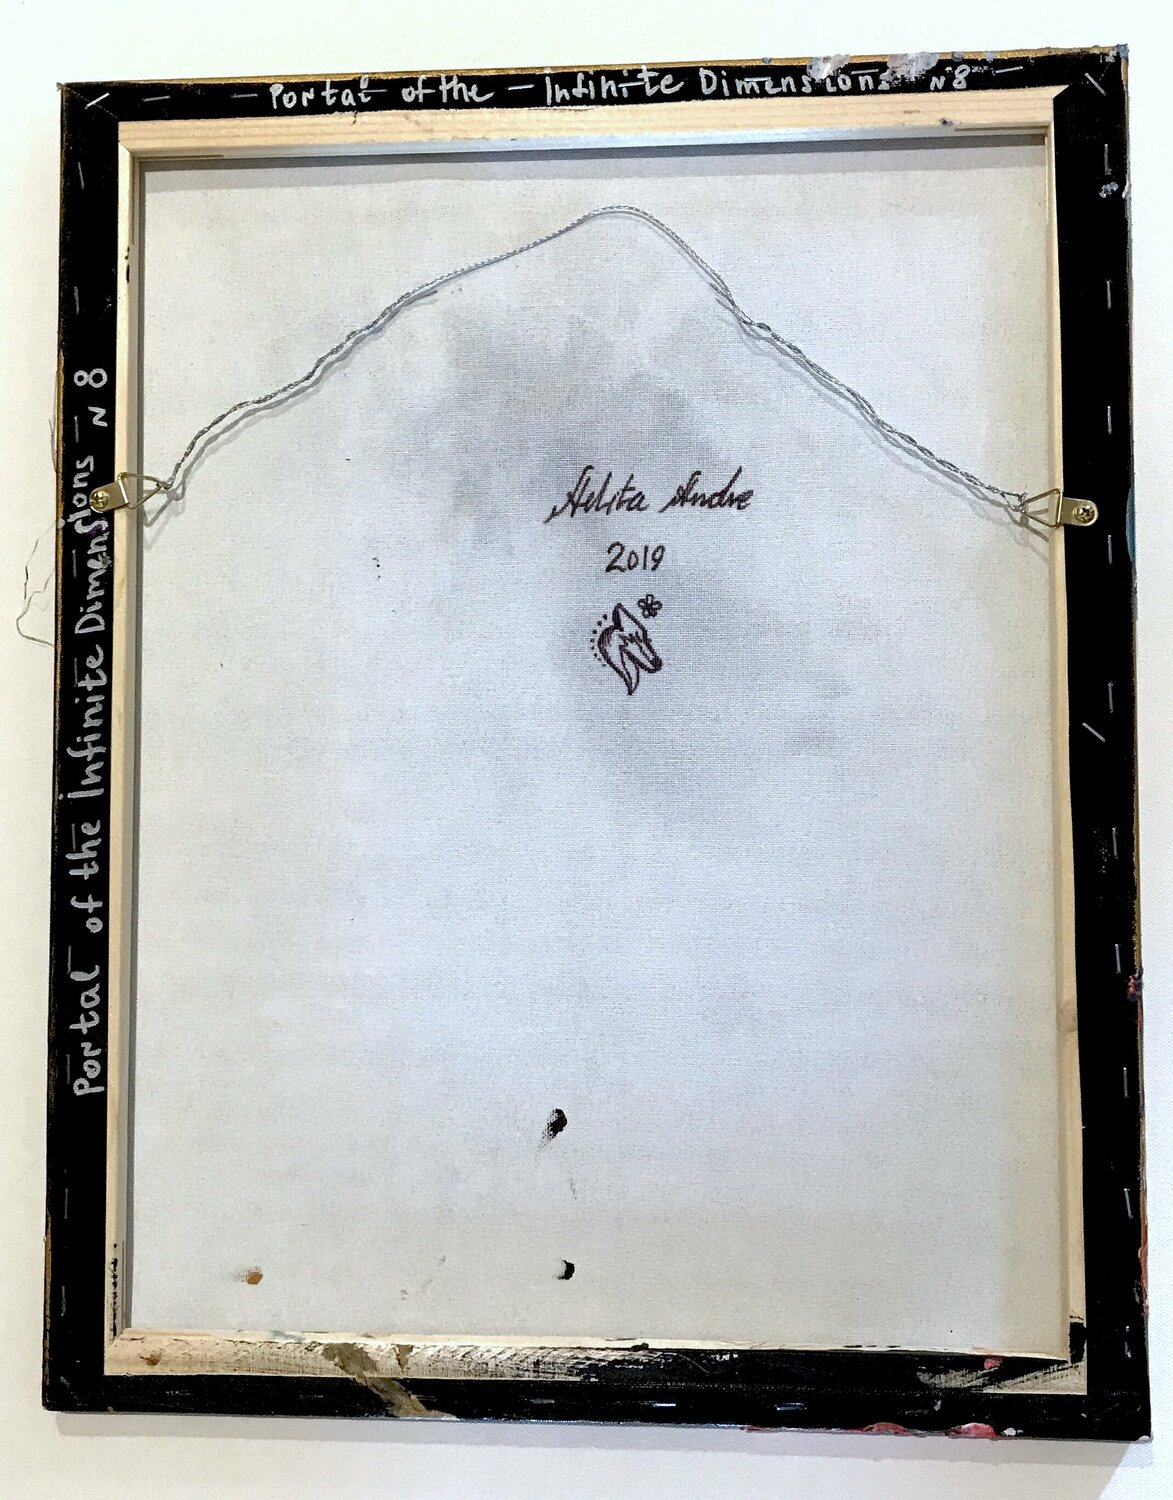 Portal of the - Infinite Dimensions N8
Portal of the Infinite Dimensions N 8
Aelita Andre
2019